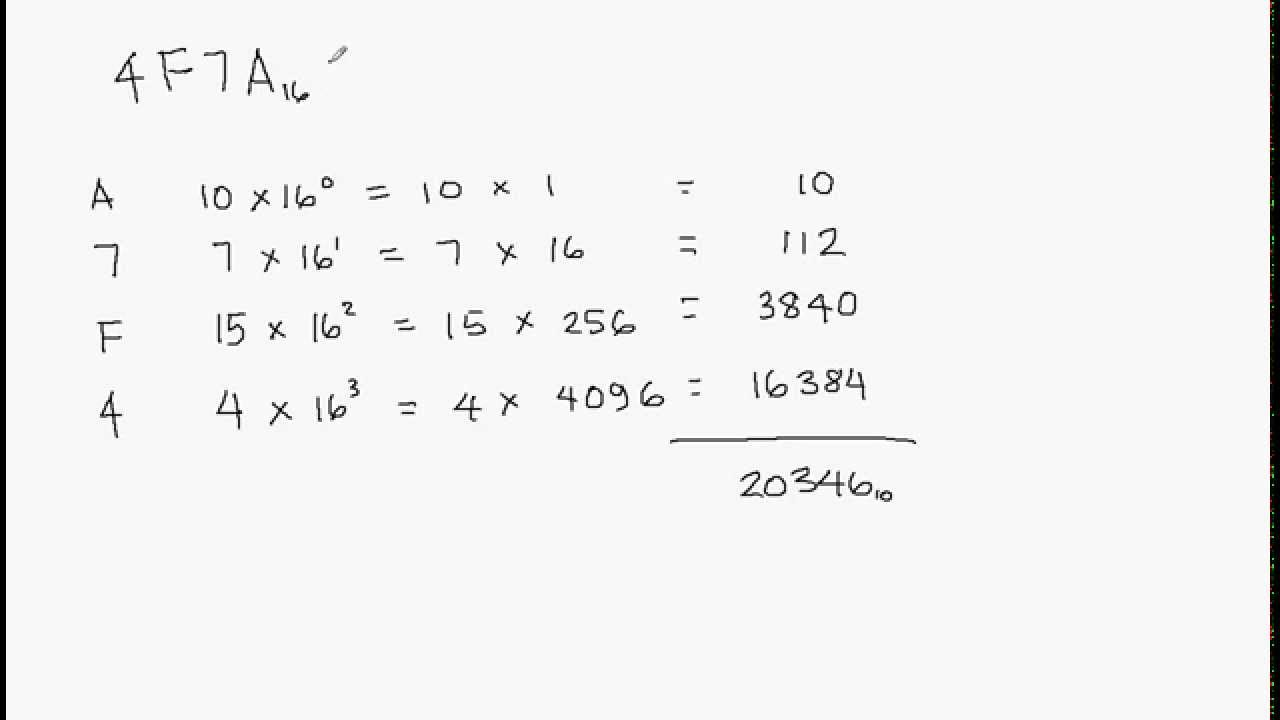 4F7A₁₆
A 10 × 16⁰ = 10 × 1 = 10
7 7 × 16¹ = 7 × 16 = 112
F 15 × 16² = 15 × 256 = 3840
4 4 × 16³ = 4 × 4096 = 16384
20346₁₀